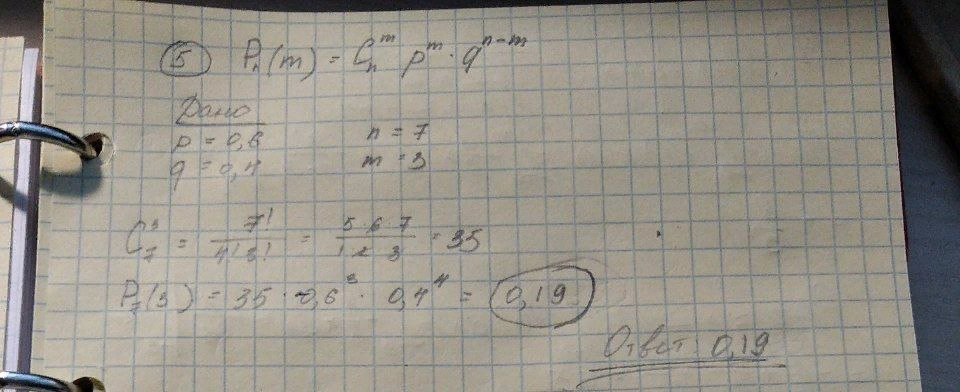 5 Pₙ(m) = Cₙᵐ pᵐ · qⁿ⁻ᵐ
Дано
p = 0,6 n = 7
q = 0,4 m = 3
C₇³ = 7! / 4! 3! = 5 · 6 · 7 / 1 · 2 · 3 = 35
P₇(3) = 35 · 0,6³ · 0,4⁴ = 0,19
Ответ 0,19